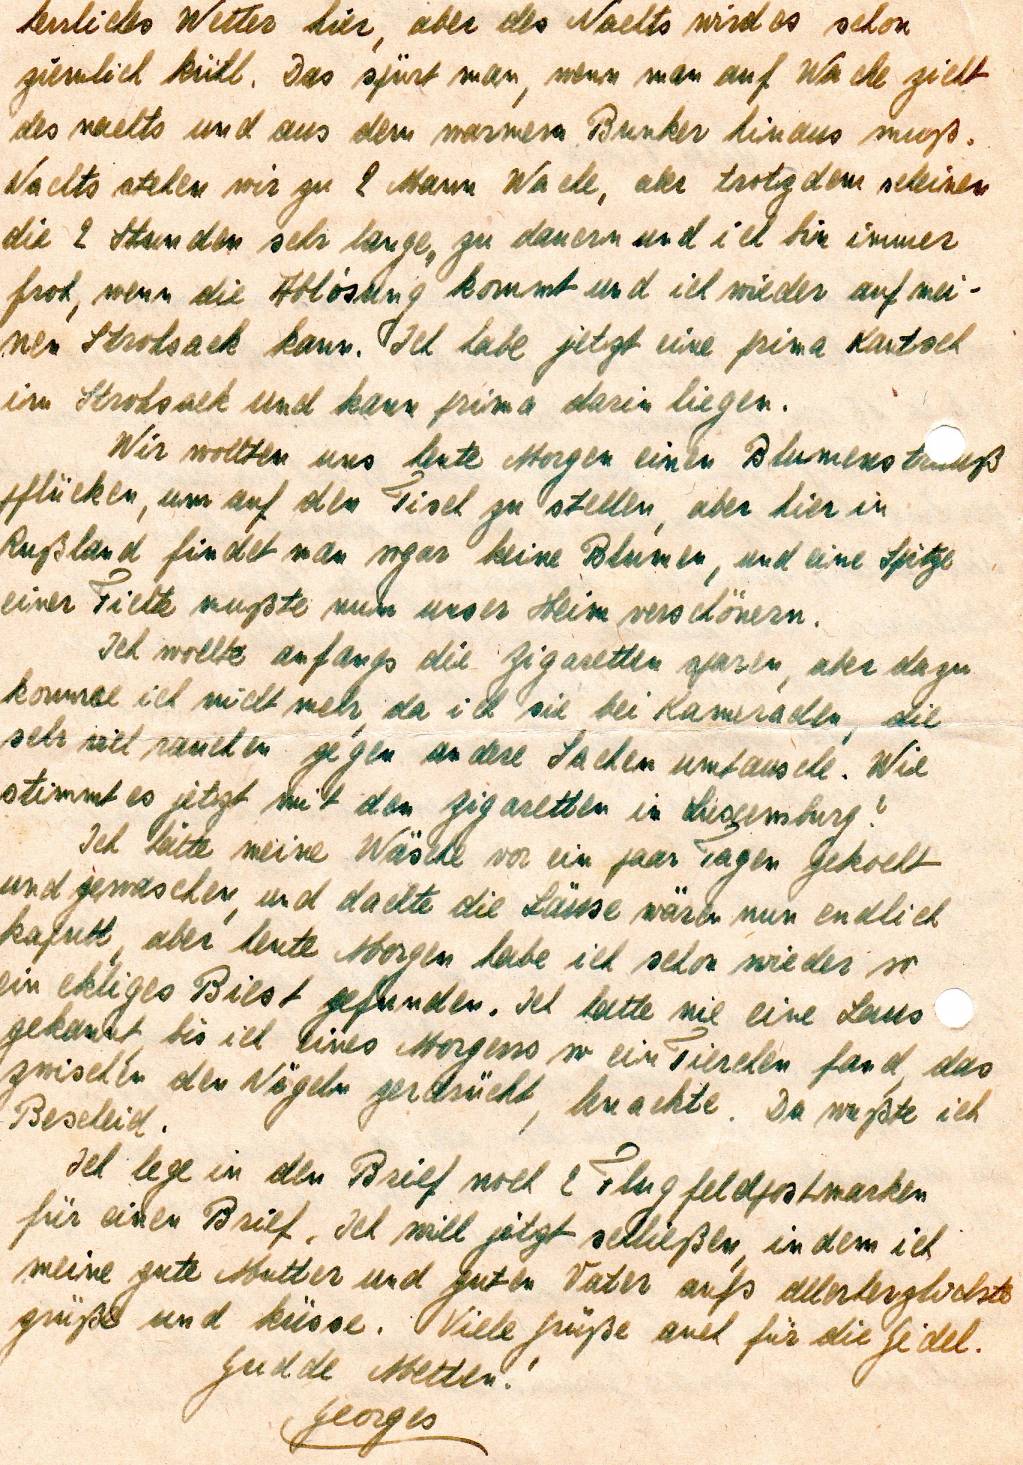 herrliches Wetter hier, aber des Nachts wird es schon
ziemlich kühl. Das spürt man, wenn man auf Wache zieht
des nachts und aus dem warmem Bunker hinaus muß.
Nachts stehen wir zu 2 Mann Wache, aber trotzdem scheinen
die 2 Stunden sehr lange, zu dauern und ich bin immer
froh, wenn die Ablösung kommt und ich wieder auf mei-
nen Strohsack kann. Ich habe jetzt eine prima
im Strohsack und kann prima darin liegen.
Wir wollten uns heute Morgen einen Blumenstrauß
pflücken, um auf den Tisch zu stellen, aber hier in
Rußland findet man sogar keine Blumen, und eine Spitze
einer Fichte mußte nun unser Heim verschönern.
Ich wollte anfangs die Zigaretten sparen, aber dazu
komme ich nicht mehr, da ich sie bei Kameraden, die
sehr viel rauchen gegen andere Sachen umtausche. Wie
stimmt es jetzt mit den Zigaretten in Luxemburg?
Ich hätte meine Wäsche vor ein paar Tagen gekocht
und gewaschen, und dachte die Läuse wären nun endlich
kaputt, aber heute Morgen habe ich schon wieder so
ein ekliges Biest gefunden. Ich hatte nie eine Laus
gekannt, bis ich eines Morgens so ein Tierchen fand, das
zwischen den Nägeln zerdrückt, knackte. Da wußte ich
Bescheid.
Ich lege in den Brief noch 2 Flugfeldpostmarken
für einen Brief. Ich will jetzt schließen, indem ich
meine gute Mutter und guten Vater aufs allerherzlichste
grüße und küsse. Viele Grüße auch für die Geidel.
Gudde Metten!
Georges